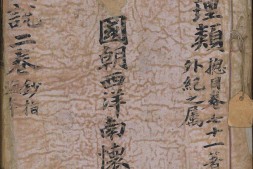 理類
總目卷七十一著
外紀之屬
國朝西洋南懷
說二卷
鈔指